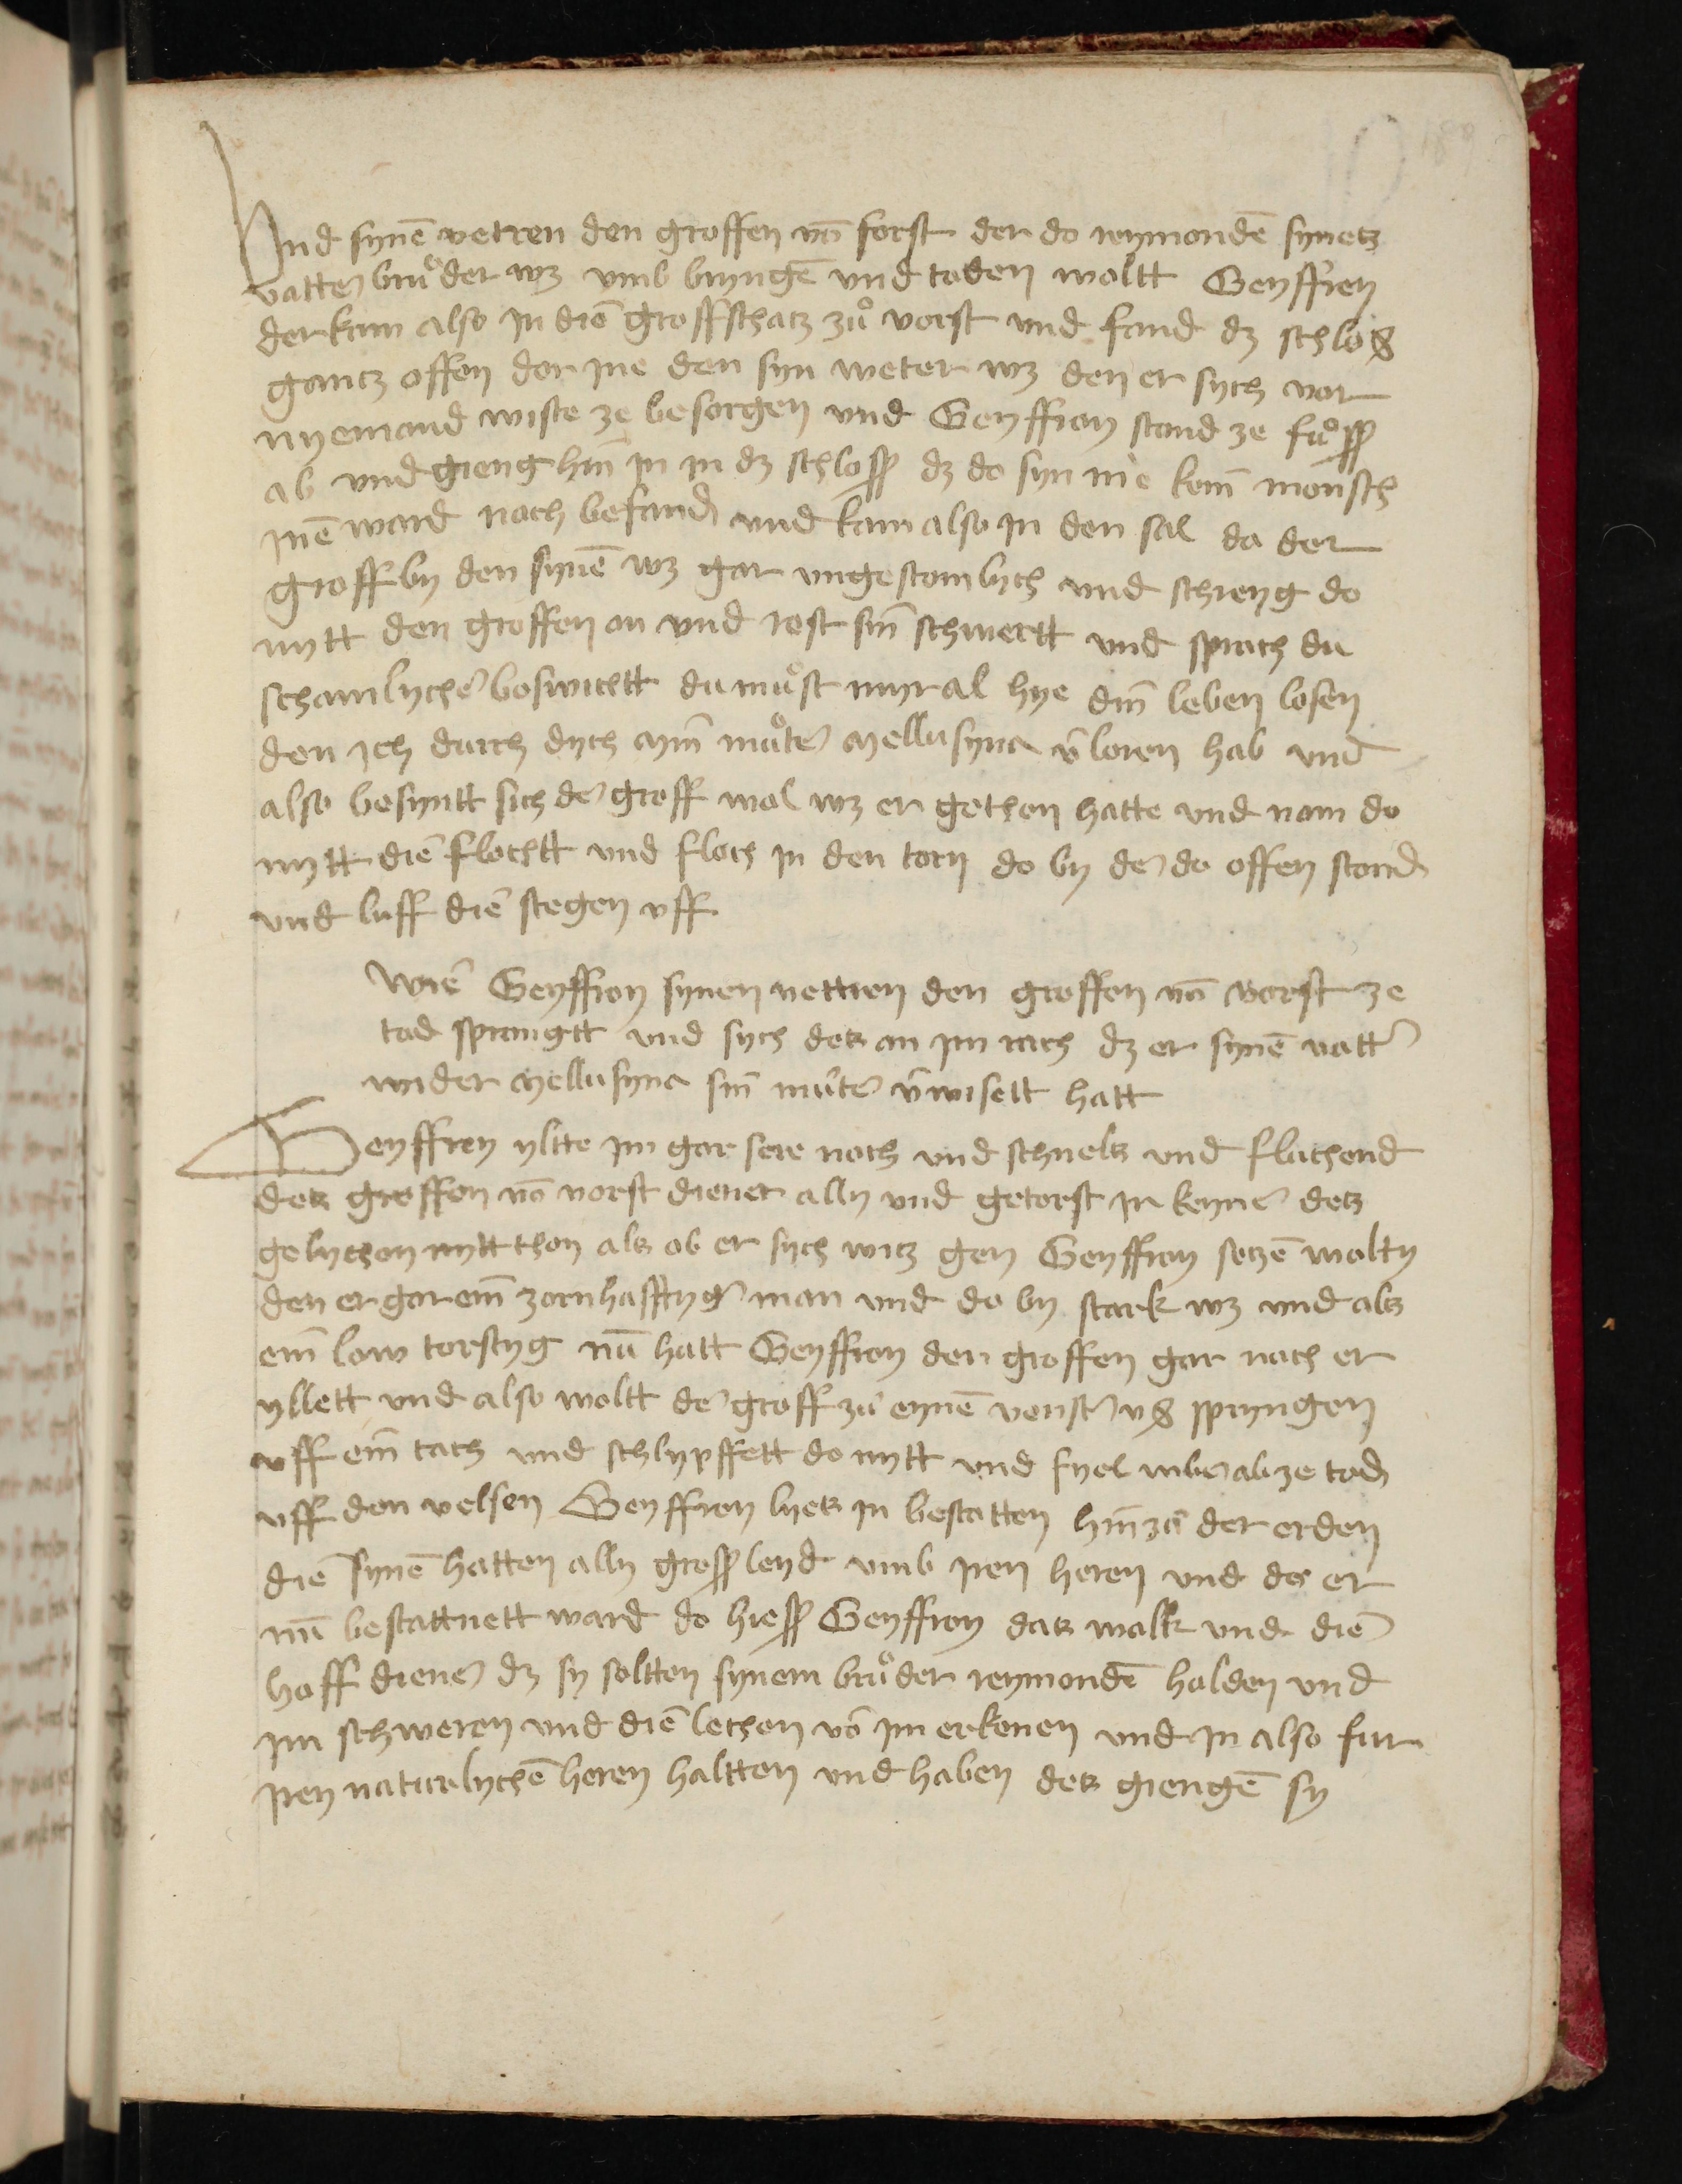 189
Vnd synē vetren den groffen vō forst der do reymondē synetz
vatter bruͦder wz vmb bryngē vnd toden woltt Geyffroy
der kam also in die groffschatz zuͦ vorst vnd fand dz schloß
gantz offen dor jne den syn vetter wz den er sych vor
nyemand wiste ze besorgen vnd Geyffroy stond ze fuͦss
ab vnd gieng hin in in dz schloss dz do syn nie kein mönsch
jnē ward noch befand vnd kam also in den sal da der
groff by den synē wz gar vngestomlych vnd schreyg do
mytt den groffen an vnd rost sin schwertt vnd sprach du
schamlycher boswichtt du muͦst myr al hye din leben losen
den ich durch dych myn muͦter Mellusyna v̄loren hab vnd
also besyntt sich der groff wol wz er gethon hatte vnd nam do
mytt die flochtt vnd floch in den torn do by der do offen stond
vnd luff die stegen vff
Wie Geyffroy synen vettren den groffen vō vorst ze
tod sprangtt vnd sych dez an im rach dz er synē vatter
wyder Mellusyna sin muͦter v̄wiselt hatt
Geyffroy yltte im gar sere noch vnd schnelz vnd fluchend
dez groffen vō vorst diener ally vnd getorst ir keyner detz
gelychen nytt thon alz ob er sych witz gen Geyffroy setzē wolty
den er gar ein zornhafftyg man vnd do by stark wz vnd alz
ein low torstyg nū hatt Geyffroy den groffen gar noch er
yllett vnd also woltt der groff zuͦ eynē venster vß spryngen
vff ein tach vnd schlypffett do mytt vnd fyel vber ab ze tod
vff den velsen Geyffroy lyetz in bestatten hin zuͦ der erden
die synē hatten ally gross leyd vmb iren heren vnd do er
nū bestattnett ward do hiess Geyffroy daz walk vnd die
hoff diener dz sy soltten synem bruͦder reymondē halden vnd
im schweren vnd die lechen vō im erkenen vnd in also fur
iren naturlychē heren haltten vnd haben dez giengē sy